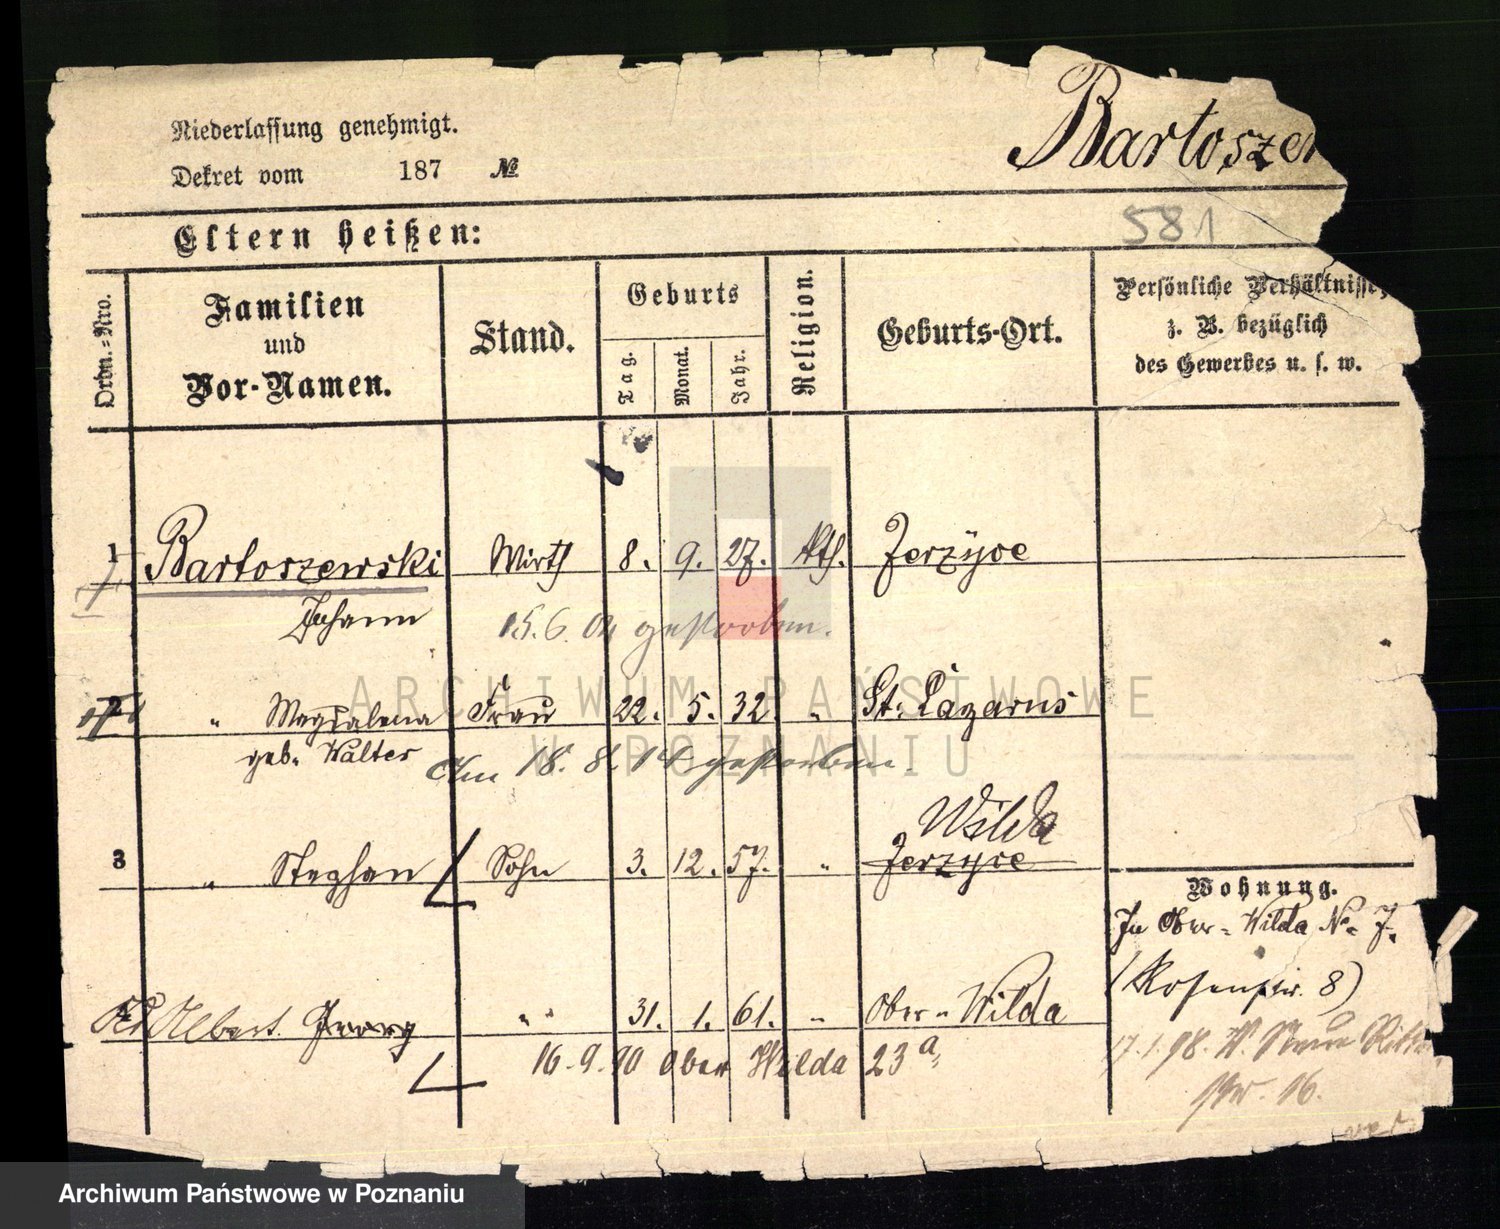 Niederlassung genehmigt.
Bartoszew
Dekret vom 187 №
Eltern heißen:
581
Ordn.-Nro.
Familien und Vor-Namen.
Stand.
Geburts
Tag.
Monat.
Jahr.
Religion.
Geburts-Ort.
Persönliche Verhältnisse,
z. B. bezüglich
des Gewerbes u. s. w.
1 Bartoszewski Wirth 8. 9. 27. kth. Jerzyce
Johann
15.6.04 gestorben.
2 " Magdalena Frau 22. 5. 32 " St. Lazarus
geb. Walter
Am 18. 8. 14 gestorben.
Wilda
3 " Stephan Sohn 3. 12. 57. " Jerzyce
Wohnung.
In Ober-Wilda No 7.
(Rosenstr. 8)
Albert Georg " 31. 1. 61. " Ober-Wilda
16.9.90 Ober Wilda 23a,
17.1.98. W. Neue
str. 16.
ARCHIWUM PAŃSTWOWE
W POZNANIU
Archiwum Państwowe w Poznaniu